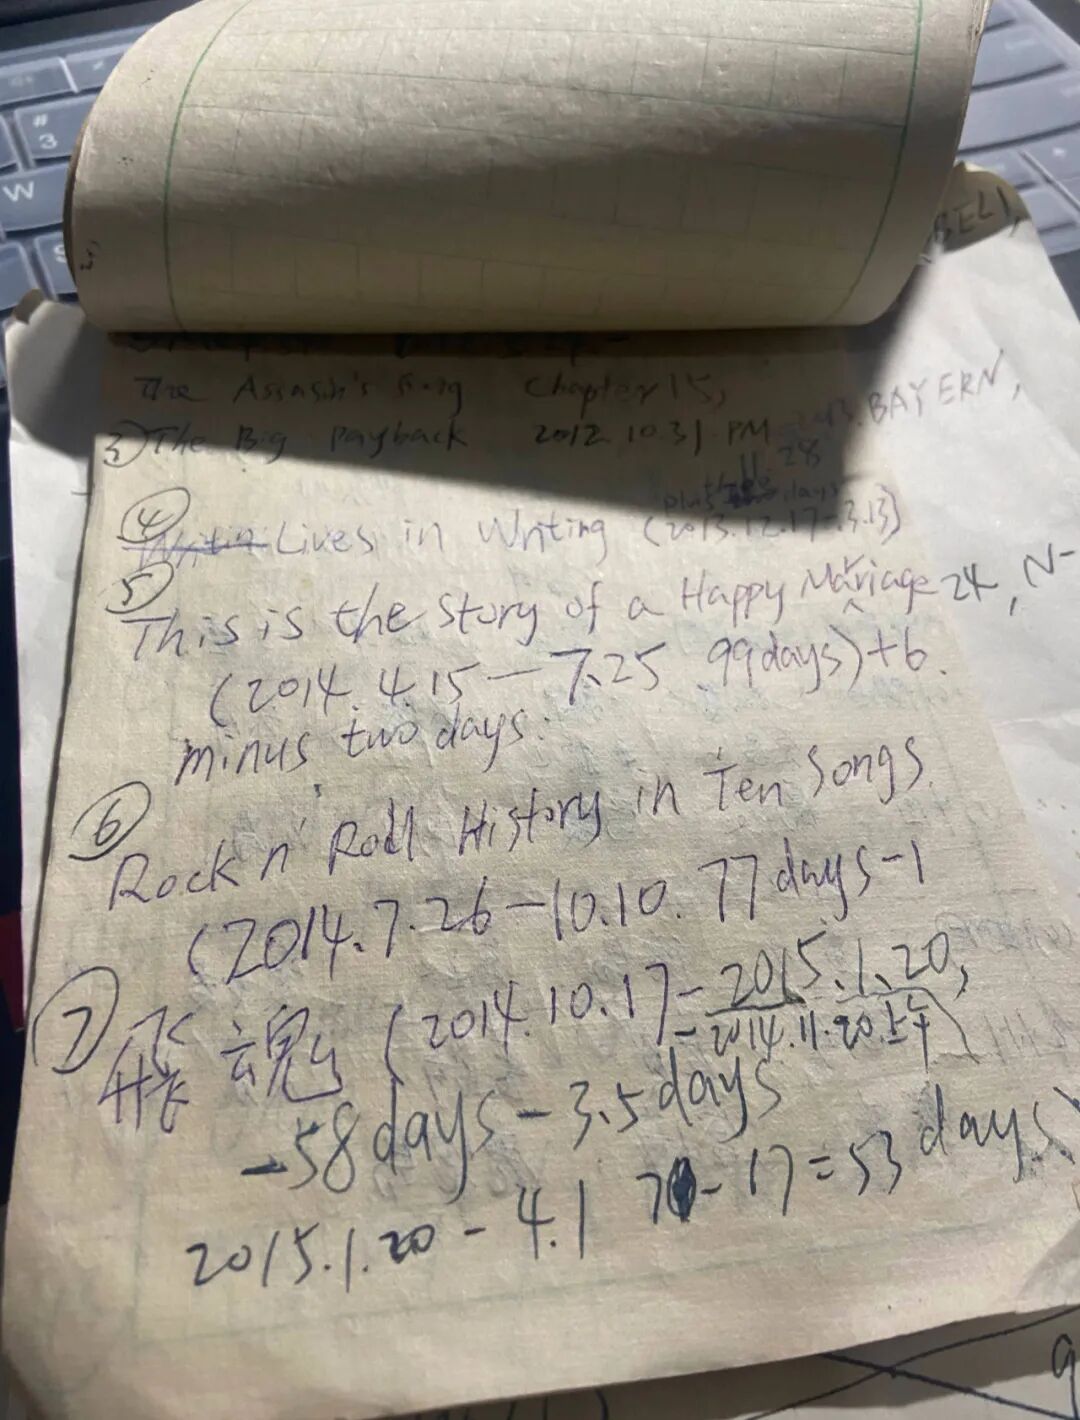 #
3
W
BEL),
The Assasin's Song Chapter 15,
③ The Big Payback 2012.10.31.PM
BAYERN,
11.28
plus days
④
Lives in Writing (2013.12.17-3.13)
⑤
This is the Story of a Happy Marriage 24, N-
(2014.4.15—7.25 99days)+6.
minus two days.
⑥
Rock n' Roll History in Ten Songs.
(2014.7.26—10.10. 77days-1
⑦
魂 (2014.10.17-2015.1.20,
-2014.11.20.上午)
-58days-3.5days
2015.1.20-4.1 70-17=53 days)
9